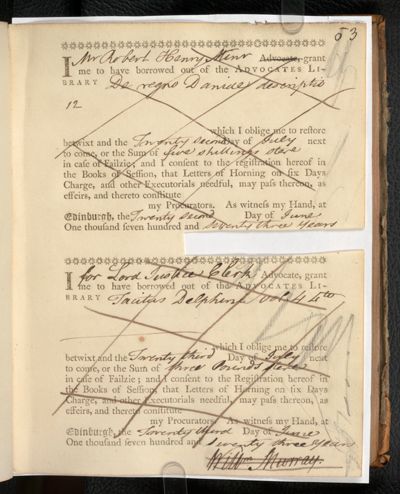 53
I Mr Robert Henry Advocate, grant
me to have borrowed out of the ADVOCATES LI-
BRARY De regno Daniae descriptio
12
which I oblige me to restore
betwixt and the Twenty second Day of July next
to come, or the Sum of five shillings ster
in case of Failzie; and I consent to the registration hereof in
the Books of Session, that Letters of Horning on six Days
Charge, and other Executorials needful, may pass thereon, as
effeirs, and thereto constitute
my Procurators. As witness my Hand, at
Edinburgh, the Twenty second Day of June
One thousand seven hundred and seventy three Years
I for Lord Justice Clerk Advocate, grant
me to have borrowed out of the ADVOCATES LI-
BRARY Tacitus Delphini Vol 4 4to
which I oblige me to restore
betwixt and the Twenty third Day of July next
to come, or the Sum of three Pounds
in case of Failzie; and I consent to the Registration hereof in
the Books of Session, that Letters of Horning on six Days
Charge, and other Executorials needful, may pass thereon, as
effeirs, and thereto constitute
my Procurators. As witness my Hand, at
Edinburgh, the Twenty third Day of June
One thousand seven hundred and seventy three Years
Willm Murray.